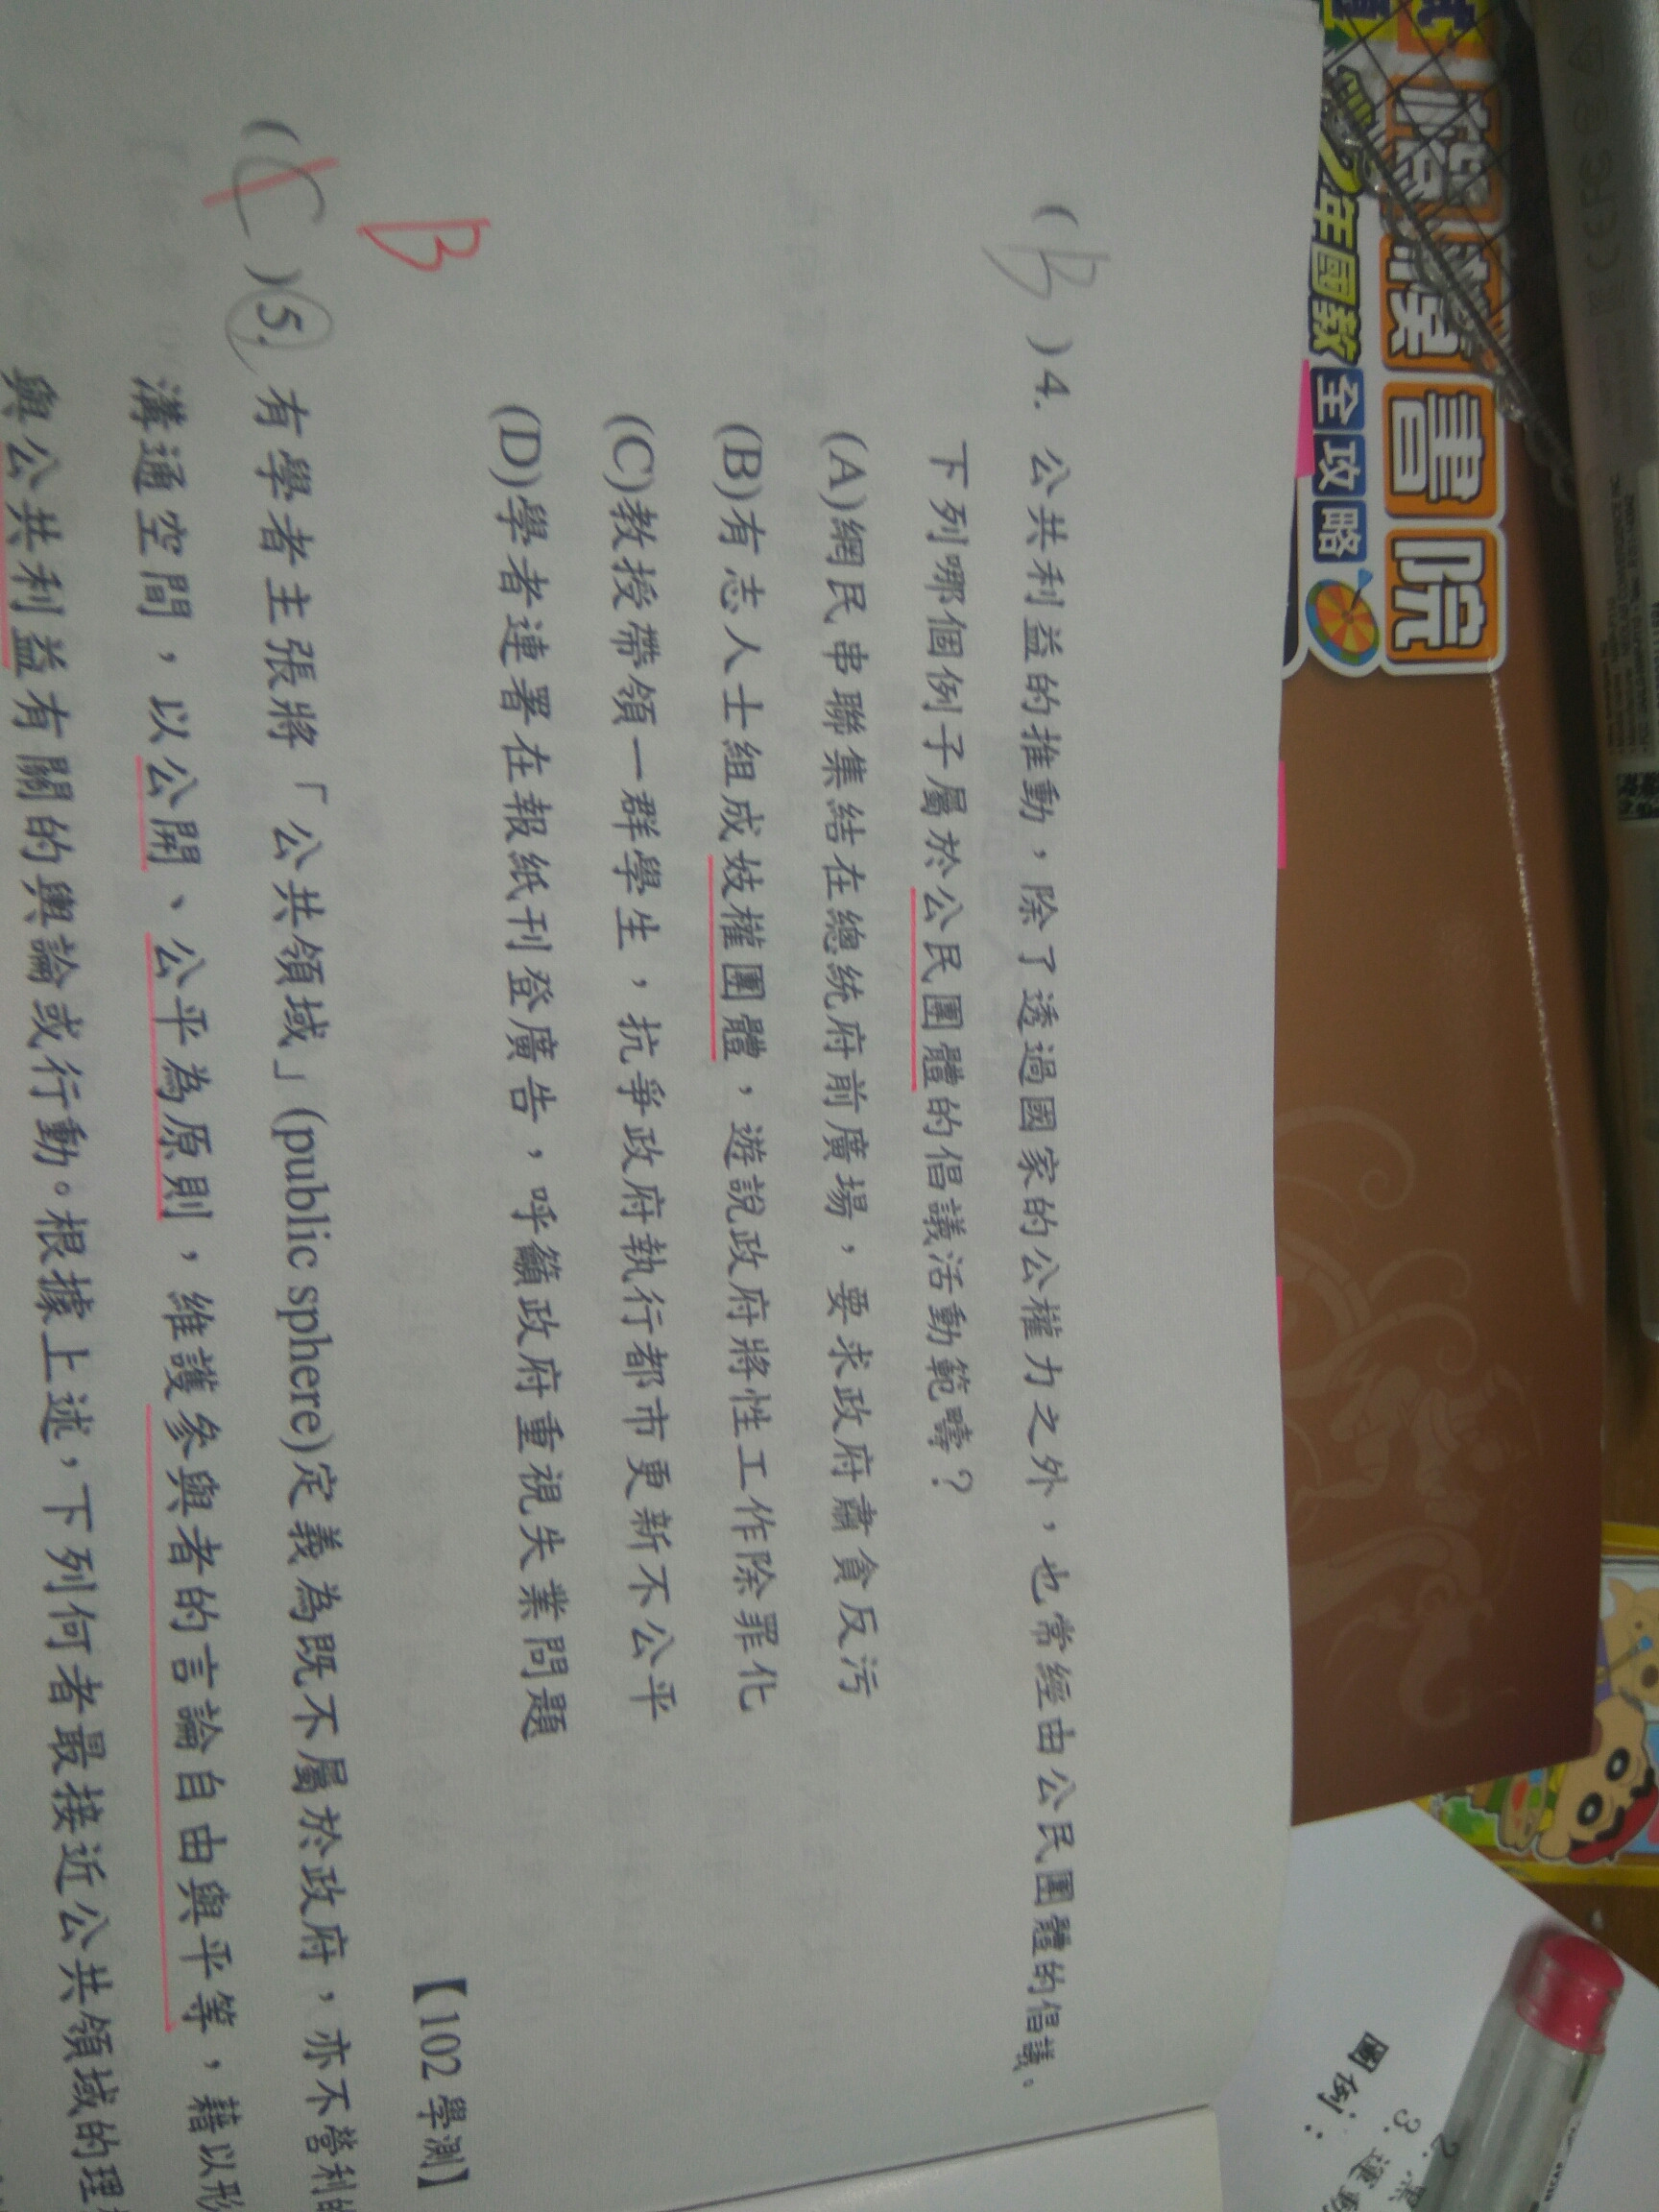 檔模書院
2年國教全攻略
(B)4. 公共利益的推動，除了透過國家的公權力之外，也常經由公民團體的倡議。
下列哪個例子屬於公民團體的倡議活動範疇？
(A)網民串聯集結在總統府前廣場，要求政府肅貪反污
(B)有志人士組成妓權團體，遊說政府將性工作除罪化
(C)教授帶領一群學生，抗爭政府執行都市更新不公平
(D)學者連署在報紙刊登廣告，呼籲政府重視失業問題
【102學測】
B
(C)5. 有學者主張將「公共領域」(public sphere)定義為既不屬於政府，亦不營利的
溝通空間，以公開、公平為原則，維護參與者的言論自由與平等，藉以形
與公共利益有關的輿論或行動。根據上述，下列何者最接近公共領域的理
圖例：
3. 運動
2.